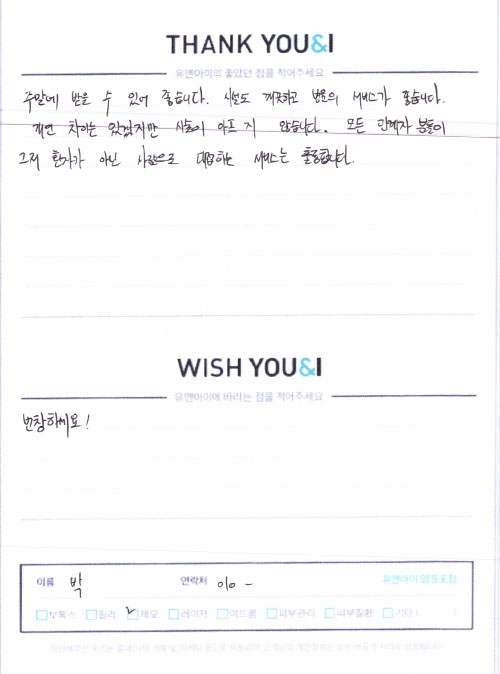 THANK YOU&I
유앤아이의 좋았던 점을 적어주세요
주말에 받을 수 있어 좋습니다. 시설도 깨끗하고 병원의 서비스가 좋습니다.
개인 차이는 있겠지만 시술이 아프지 않습니다. 모든 관계자 분들이
그저 환자가 아닌 사람으로 대응하는 서비스는 훌륭합니다.
WISH YOU&I
유앤아이에 바라는 점을 적어주세요
번창하세요!
이름 박 연락처 010 - 유앤아이 영등포점
보톡스 필러 제모 레이저 여드름 피부관리 피부질환 기타 ( )